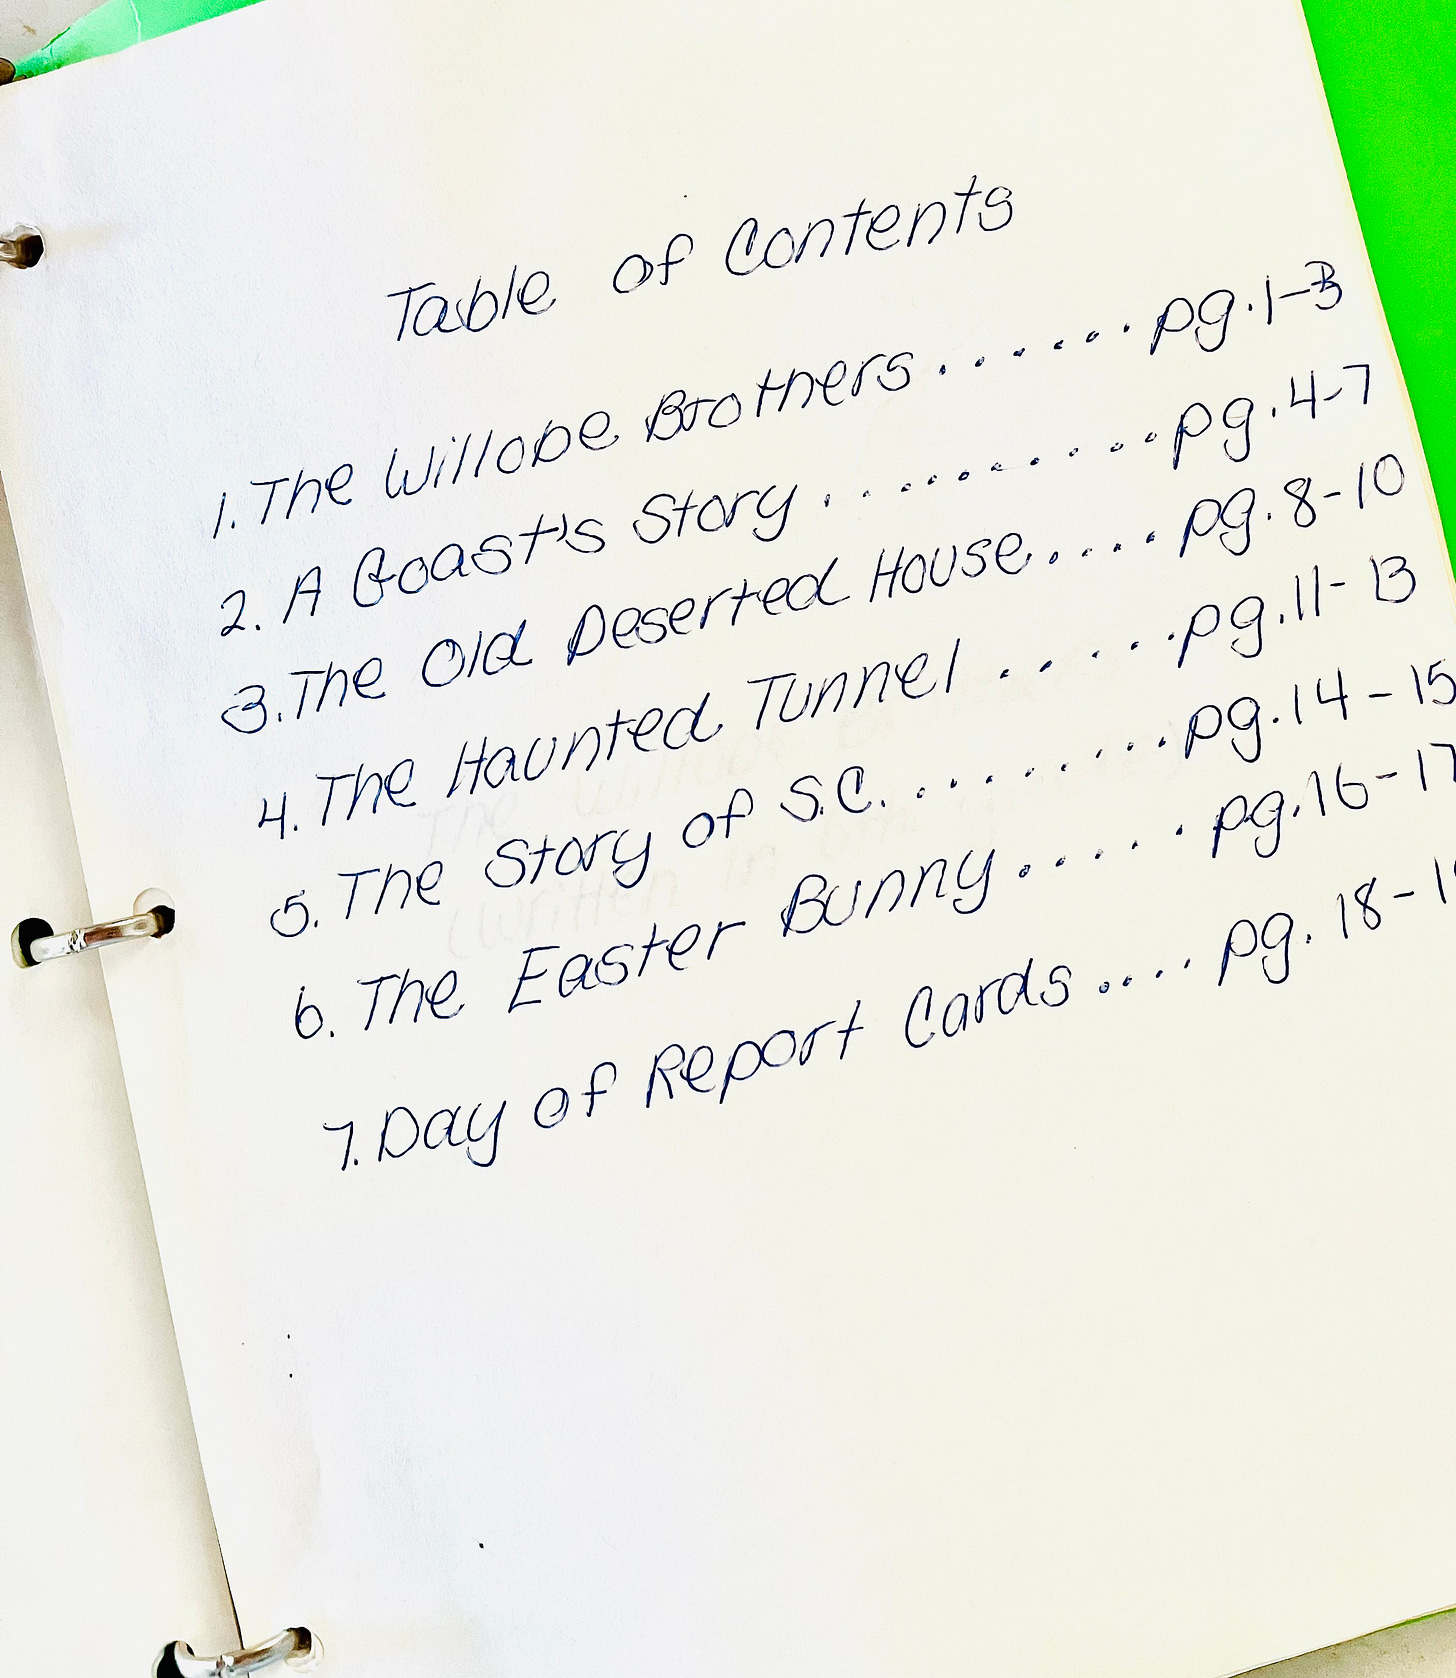 Table of Contents
1. The Willobe Brothers ...... pg. 1-3
2. A Goast's Story .......... pg. 4-7
3. The Old Deserted House..... pg. 8-10
4. The Haunted Tunnel ..... pg. 11-13
5. The Story of S.C. ........ pg. 14-15
6. The Easter Bunny ..... pg. 16-17
7. Day of Report Cards .... pg. 18-1
The
(written in